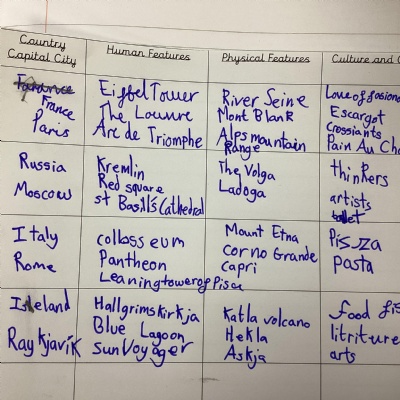 Country
Capital City
Human Features
Physical Features
Culture and
France
Paris
Eiffel Tower
The Louvre
Arc de Triomphe
River Seine
Mont Blank
Alps mountain
Range
Love of fasion
Escargot
Crossiants
Pain Au Ch
Russia
Moscow
Kremlin
Red square
st Basill's Cathedral
The Volga
Ladoga
thinkers
artists
Italy
Rome
collosseum
Pantheon
Leaning tower of Pisa
Mount Etna
Corno Grande
Capri
Piszza
pasta
Iseland
Raykjavik
Hallgrimskirkja
Blue Lagoon
Sun Voyager
Katla volcano
Hekla
Askja
food fis
litriture
arts